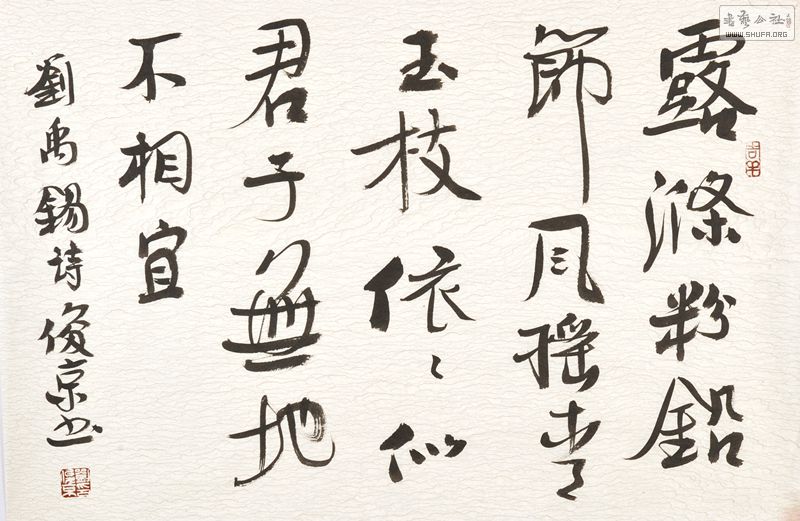 露滌粉鉛
節風搖青
玉枝依〻似
君子無地
不相宜
劉禹錫诗俊京书
書藝公社
WWW.SHUFA.ORG